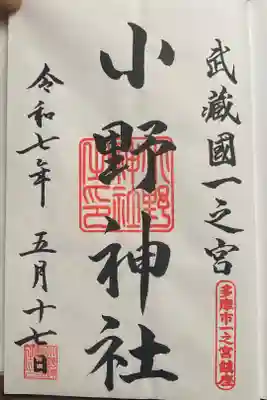 武蔵國一之宮
多摩市一之宮鎮座
小野神社
令和七年 五月十七日